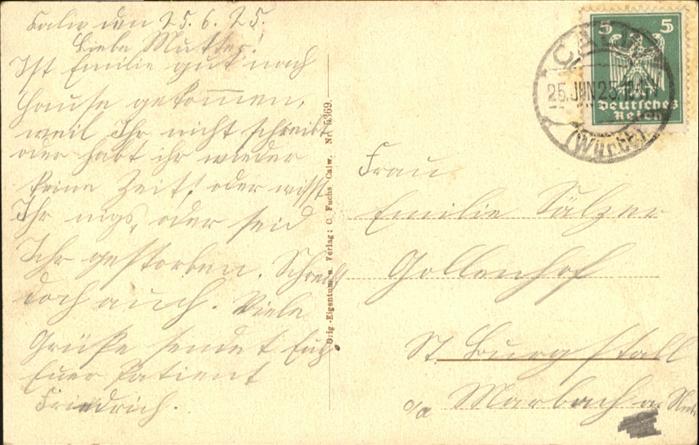 Calw den 25.6.25.
Liebe Mutter!
Ist Emilie gut nach
Hause gekommen,
weil Ihr nicht schreibt
oder habt ihr wieder
keine Zeit, oder wisst
Ihr nigs, oder seid
Ihr gestorben. Schreibt
doch auch. Viele
Grüße sendet Euch
Euer Patient
Friedrich.
Orig.-Eigentum u. Verlag: C. Fuchs, Calw. Nr. 5369.
5 5
Deutsches
Reich
CALW
25.JUN.25
(Württ)
Frau
Emilie Sälzer
Gollenhof
St Burgstall
o/a Marbach a.